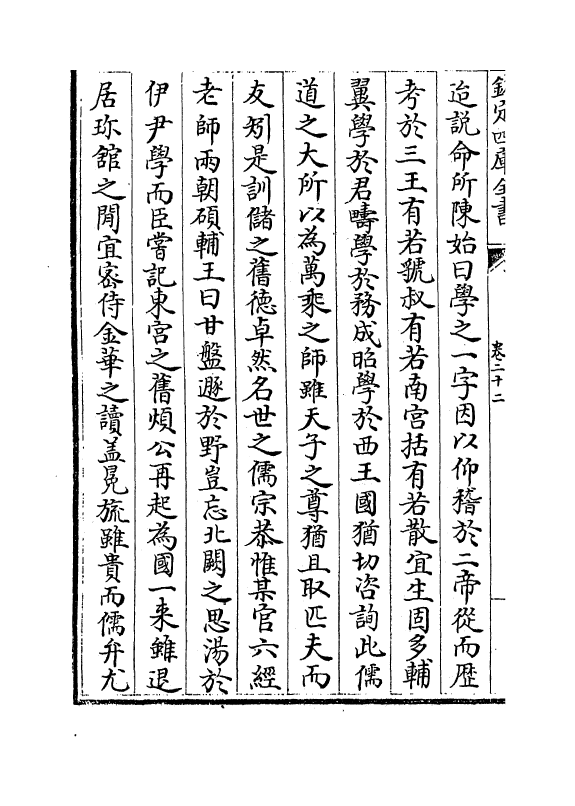 欽定四庫全書
卷二十二
迨説命所陳始曰學之一字因以仰稽於二帝從而歴
考於三王有若虢叔有若南宫括有若散宜生固多輔
翼學於君疇學於務成昭學於西王國猶切咨詢此儒
道之大所以為萬乘之師雖天子之尊猶且取匹夫而
友矧是訓儲之舊徳卓然名世之儒宗恭惟某官六經
老師兩朝碩輔王曰甘盤遯於野豈忘北闕之思湯於
伊尹學而臣嘗記東宫之舊煩公再起為國一来雖退
居珎舘之閒宜宻侍金華之讀盖冕旒雖貴而儒弁尤